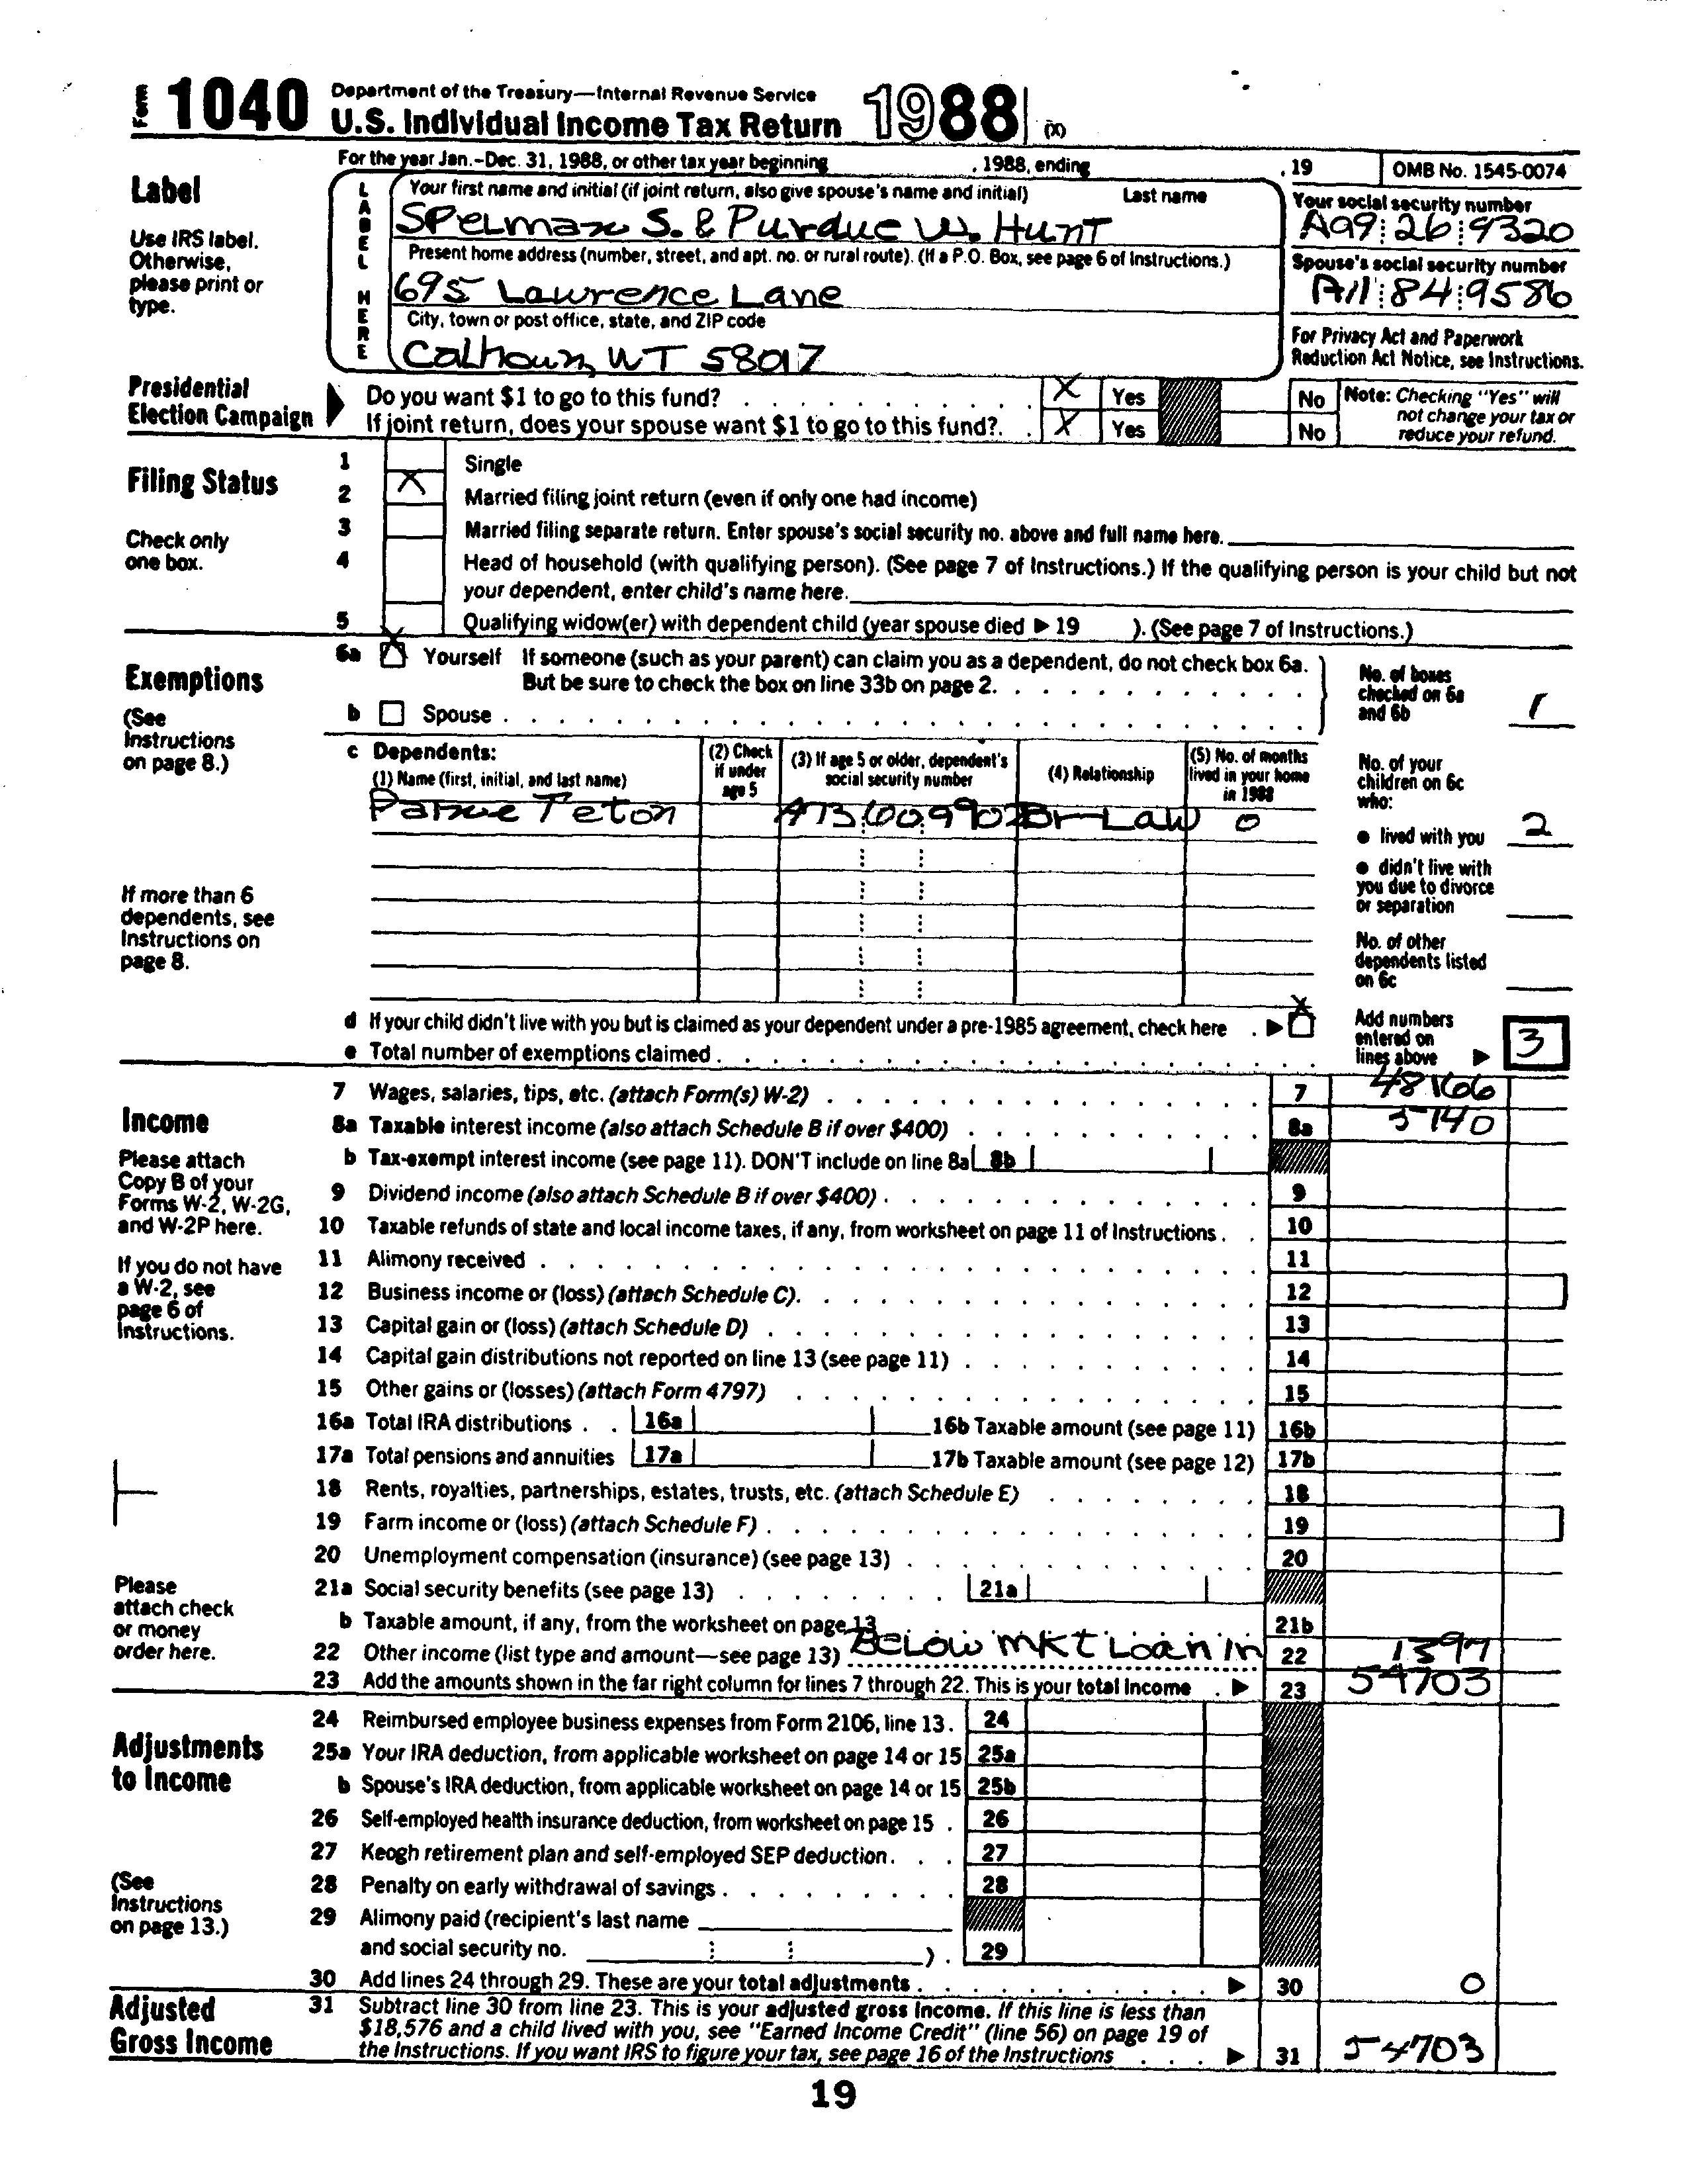 Form 1040 Department of the Treasury—Internal Revenue Service
U.S. Individual Income Tax Return 1988 (X)
For the year Jan.-Dec. 31, 1988, or other tax year beginning , 1988, ending , 19 OMB No. 1545-0074
Label
Use IRS label.
Otherwise,
please print or
type.
LABEL HERE
Your first name and initial (if joint return, also give spouse's name and initial) Last name
Spelman S. & Purdue W. Hunt
Present home address (number, street, and apt. no. or rural route). (If a P.O. Box, see page 6 of Instructions.)
695 Lawrence Lane
City, town or post office, state, and ZIP code
Calhoun, WT 58017
Your social security number
A09 26 9320
Spouse's social security number
A11 84 9586
For Privacy Act and Paperwork
Reduction Act Notice, see Instructions.
Presidential
Election Campaign
Do you want $1 to go to this fund? X Yes No
If joint return, does your spouse want $1 to go to this fund?. X Yes No
Note: Checking "Yes" will
not change your tax or
reduce your refund.
Filing Status
Check only
one box.
1 Single
2 X Married filing joint return (even if only one had income)
3 Married filing separate return. Enter spouse's social security no. above and full name here.
4 Head of household (with qualifying person). (See page 7 of Instructions.) If the qualifying person is your child but not
your dependent, enter child's name here.
5 Qualifying widow(er) with dependent child (year spouse died ▶ 19 ). (See page 7 of Instructions.)
Exemptions
(See
Instructions
on page 8.)
6a X Yourself If someone (such as your parent) can claim you as a dependent, do not check box 6a.
But be sure to check the box on line 33b on page 2.
b Spouse
No. of boxes
checked on 6a
and 6b 1
c Dependents:
(1) Name (first, initial, and last name)
(2) Check
if under
age 5
(3) If age 5 or older, dependent's
social security number
(4) Relationship
(5) No. of months
lived in your home
in 1988
Br-Law 0
No. of your
children on 6c
who:
● lived with you 2
● didn't live with
you due to divorce
or separation
No. of other
dependents listed
on 6c
If more than 6
dependents, see
Instructions on
page 8.
d If your child didn't live with you but is claimed as your dependent under a pre-1985 agreement, check here . ▶ X
e Total number of exemptions claimed
Add numbers
entered on
lines above ▶ 3
Income
Please attach
Copy B of your
Forms W-2, W-2G,
and W-2P here.
If you do not have
a W-2, see
page 6 of
Instructions.
Please
attach check
or money
order here.
7 Wages, salaries, tips, etc. (attach Form(s) W-2) 7 48166
8a Taxable interest income (also attach Schedule B if over $400) 8a 5140
b Tax-exempt interest income (see page 11). DON'T include on line 8a 8b
9 Dividend income (also attach Schedule B if over $400) 9
10 Taxable refunds of state and local income taxes, if any, from worksheet on page 11 of Instructions 10
11 Alimony received 11
12 Business income or (loss) (attach Schedule C). 12
13 Capital gain or (loss) (attach Schedule D) 13
14 Capital gain distributions not reported on line 13 (see page 11) 14
15 Other gains or (losses) (attach Form 4797) 15
16a Total IRA distributions 16a 16b Taxable amount (see page 11) 16b
17a Total pensions and annuities 17a 17b Taxable amount (see page 12) 17b
18 Rents, royalties, partnerships, estates, trusts, etc. (attach Schedule E) 18
19 Farm income or (loss) (attach Schedule F) 19
20 Unemployment compensation (insurance) (see page 13) 20
21a Social security benefits (see page 13) 21a
b Taxable amount, if any, from the worksheet on page 13 21b
22 Other income (list type and amount—see page 13) Below MKT Loan In 22 1397
23 Add the amounts shown in the far right column for lines 7 through 22. This is your total income ▶ 23 54703
Adjustments
to Income
(See
Instructions
on page 13.)
24 Reimbursed employee business expenses from Form 2106, line 13. 24
25a Your IRA deduction, from applicable worksheet on page 14 or 15 25a
b Spouse's IRA deduction, from applicable worksheet on page 14 or 15 25b
26 Self-employed health insurance deduction, from worksheet on page 15 26
27 Keogh retirement plan and self-employed SEP deduction 27
28 Penalty on early withdrawal of savings 28
29 Alimony paid (recipient's last name
and social security no. ) 29
30 Add lines 24 through 29. These are your total adjustments ▶ 30 0
Adjusted
Gross Income
31 Subtract line 30 from line 23. This is your adjusted gross income. If this line is less than
$18,576 and a child lived with you, see "Earned Income Credit" (line 56) on page 19 of
the Instructions. If you want IRS to figure your tax, see page 16 of the Instructions ▶ 31 54703
19